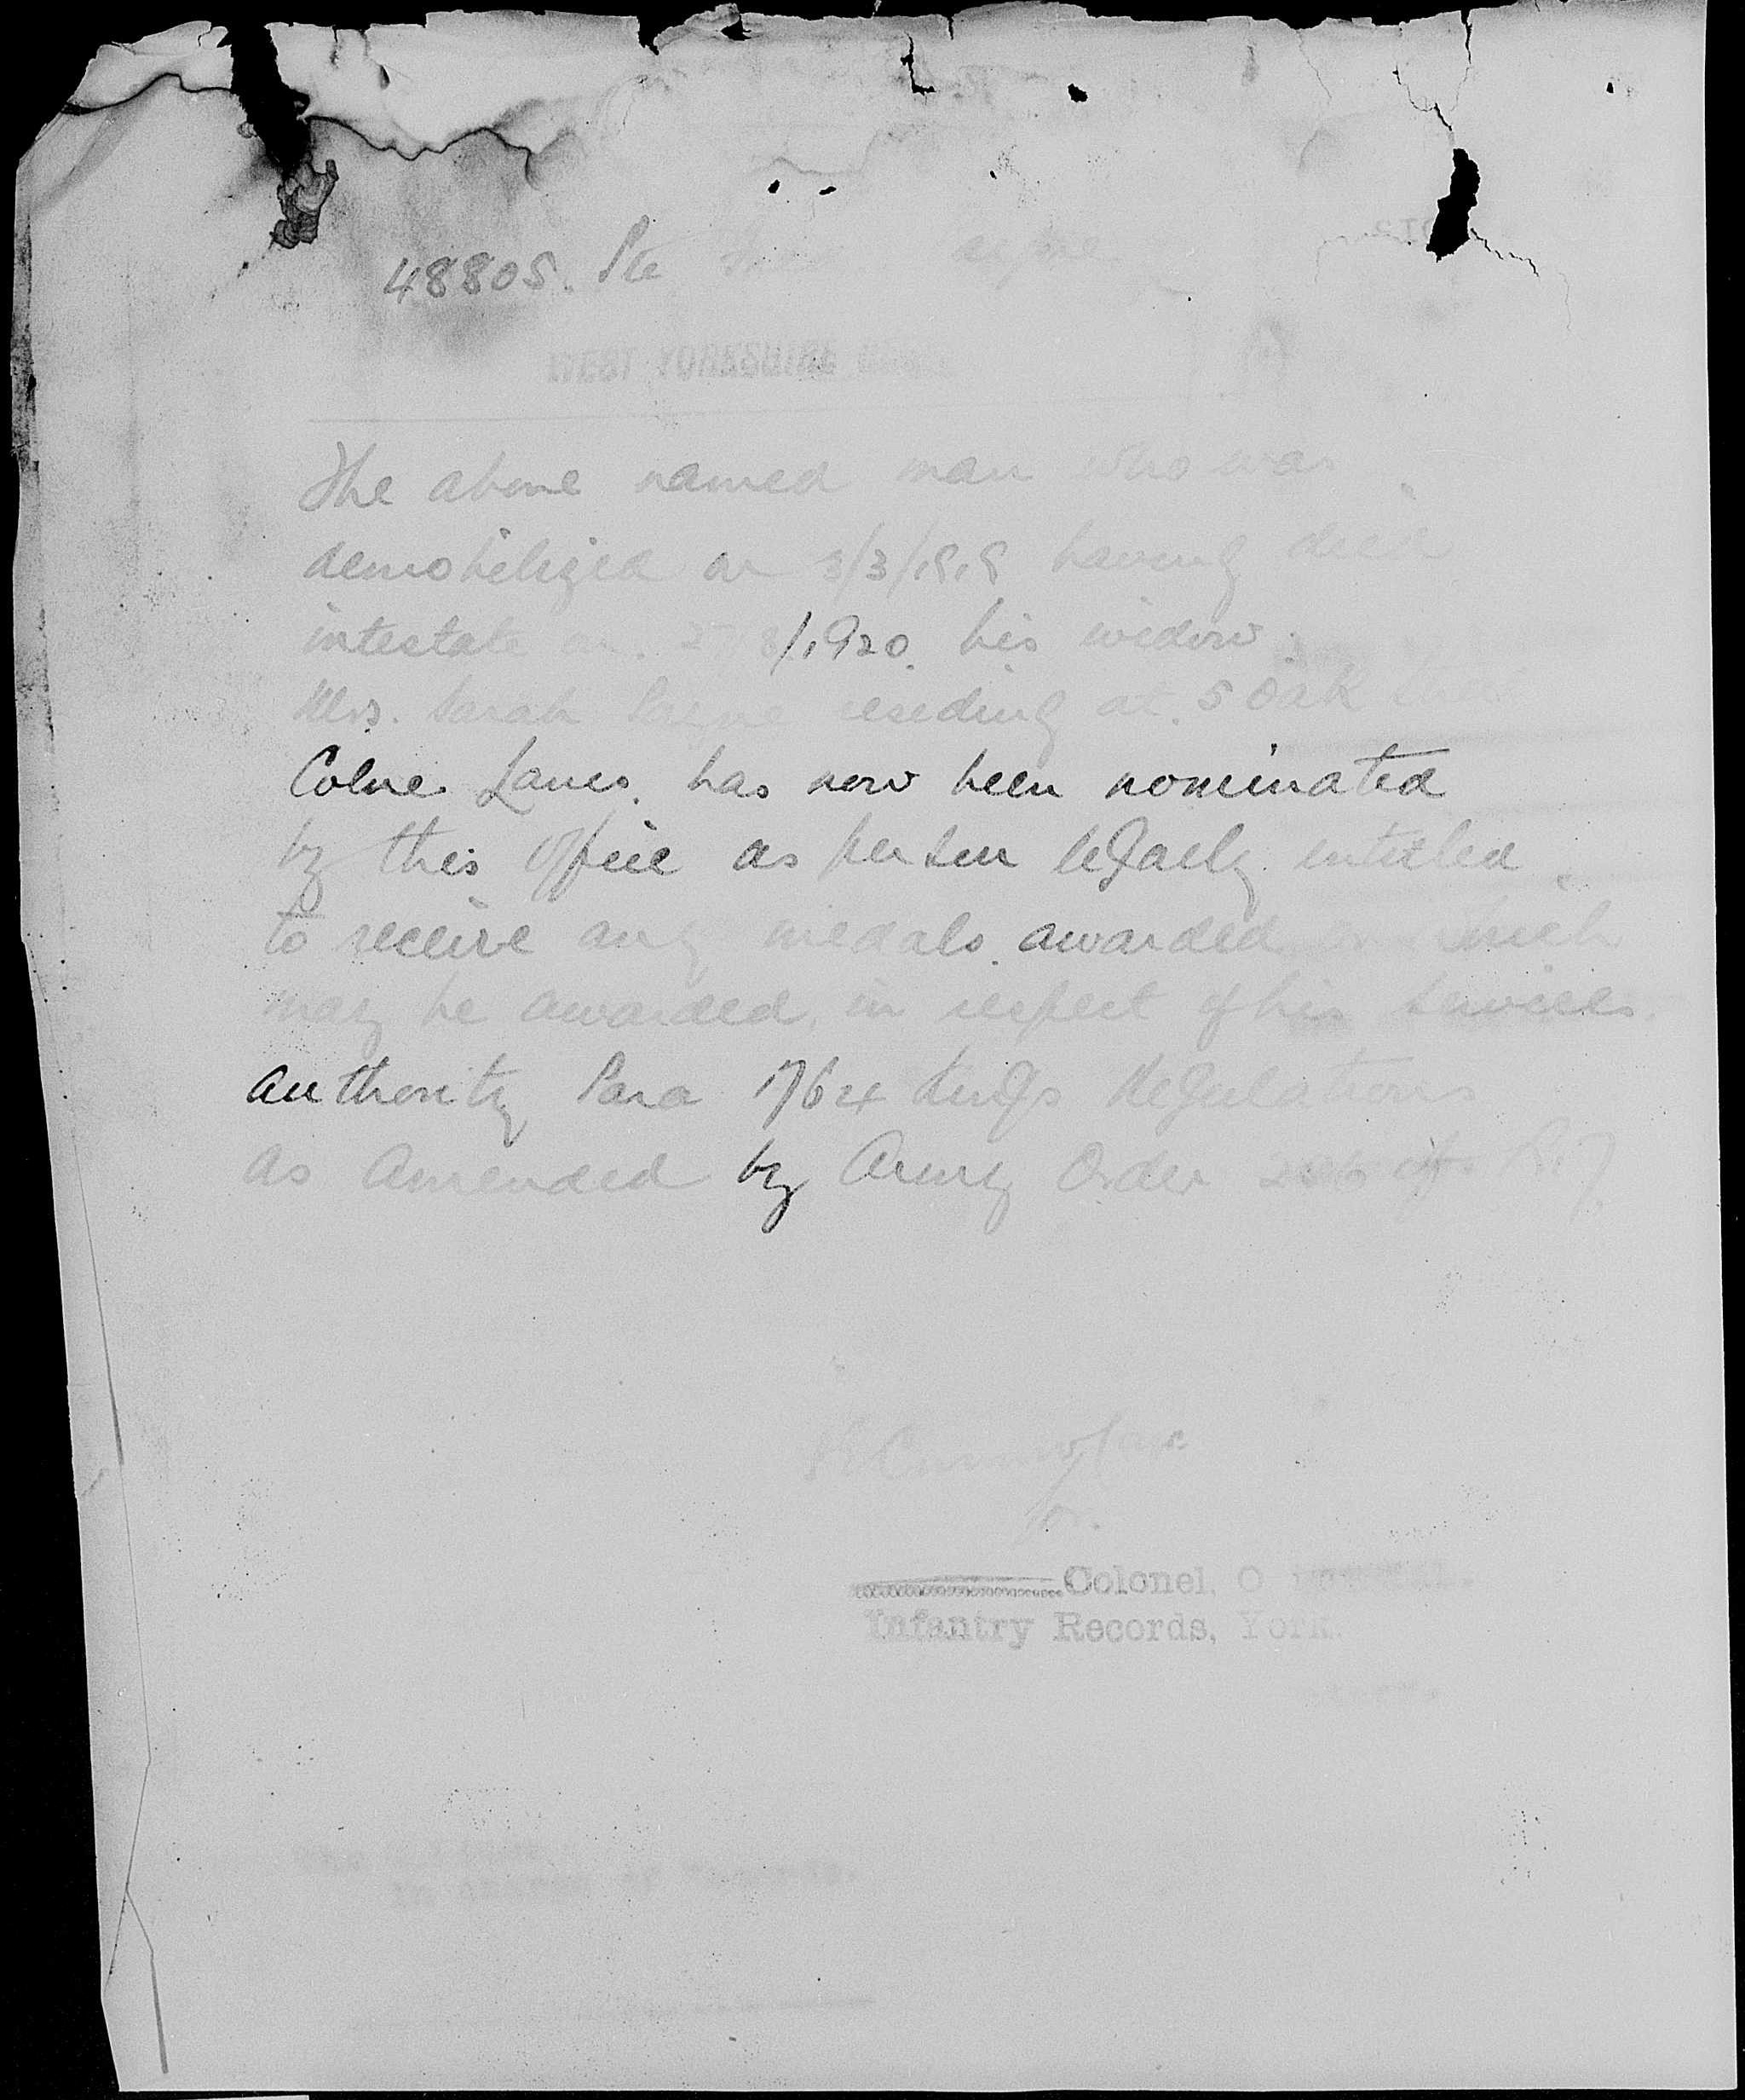 48805. Pte
WEST YORKSHIRE
The above named man who was
demobilized on 3/3/1919 having died
intestate on 27 8/1920. his widow
Mrs. Sarah residing at 5 Oak Street
Colne Lancs. has now been nominated
by this office as person legally entitled
to receive any medals awarded or which
may be awarded, in respect of his services.
Authority Para 1764 Kings Regulations
as Amended by Army Order of
for
Colonel. O
Infantry Records, York.